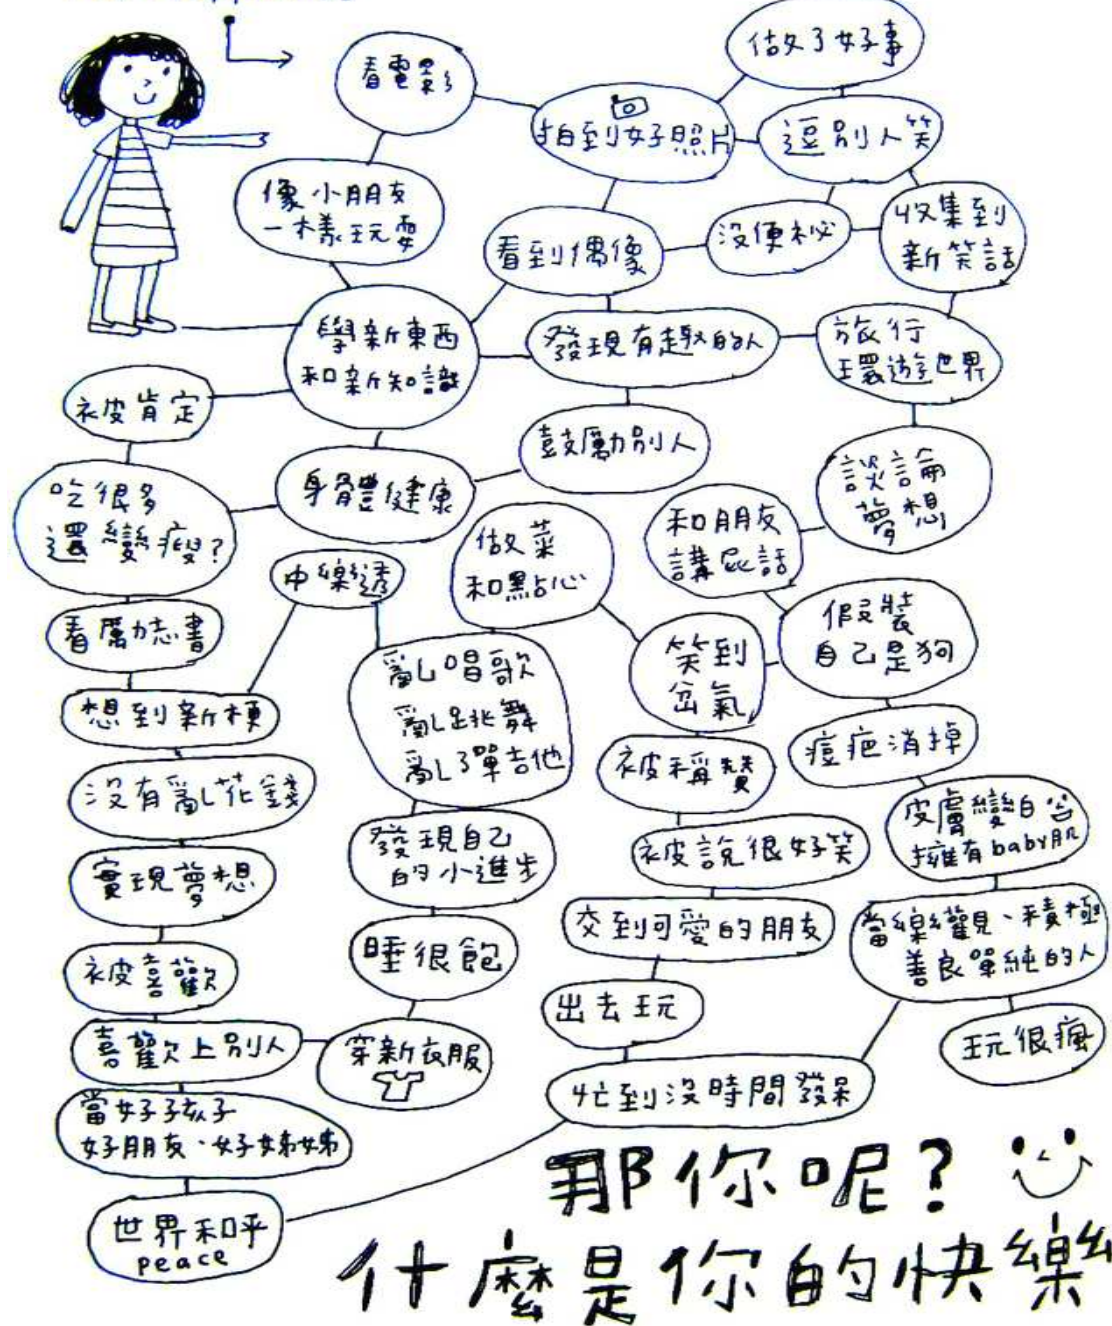 看電影
做了好事
拍到好照片
逗別人笑
像小朋友
一樣玩耍
看到偶像
沒便祕
收集到
新笑話
學新東西
和新知識
發現有趣的人
旅行
環遊世界
被肯定
鼓勵別人
身體健康
吃很多
還變瘦?
談論
夢想
和朋友
講屁話
做菜
和點心
中樂透
看勵志書
假裝
自己是狗
笑到
岔氣
亂唱歌
亂跳舞
亂彈吉他
想到新梗
痘疤消掉
被稱讚
沒有亂花錢
皮膚變白
擁有baby肌
發現自己
的小進步
被說很好笑
實現夢想
交到可愛的朋友
當樂觀、積極
善良單純的人
睡很飽
被喜歡
出去玩
喜歡上別人
穿新衣服
玩很瘋
忙到沒時間發呆
當好子孩子
好朋友、好姊姊
世界和平
peace
那你呢?
什麼是你的快樂